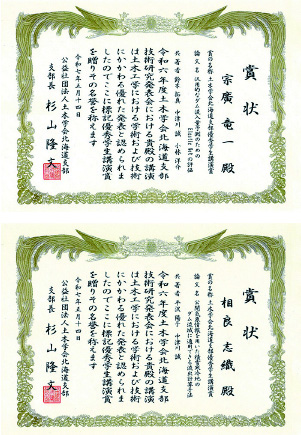 賞状
宗廣 竜一 殿
賞の名称 土木学会北海道支部優秀学生講演賞
論文名
共著者 鈴木拓真 中津川 誠 小林 洋介
令和六年度土木学会北海道支部
技術研究発表会における貴殿の講演
は土木工学における学術および技術
にかかわる優れた発表と認められま
したのでここに標記優秀学生講演賞
を贈りその名誉を称えます
令和七年五月十四日
公益社団法人土木学会北海道支部
支部長 杉山 隆文
賞状
相良 志織 殿
賞の名称 土木学会北海道支部優秀学生講演賞
論文名
共著者 平沢 陽子 中津川 誠
令和六年度土木学会北海道支部
技術研究発表会における貴殿の講演
は土木工学における学術および技術
にかかわる優れた発表と認められま
したのでここに標記優秀学生講演賞
を贈りその名誉を称えます
令和七年五月十四日
公益社団法人土木学会北海道支部
支部長 杉山 隆文